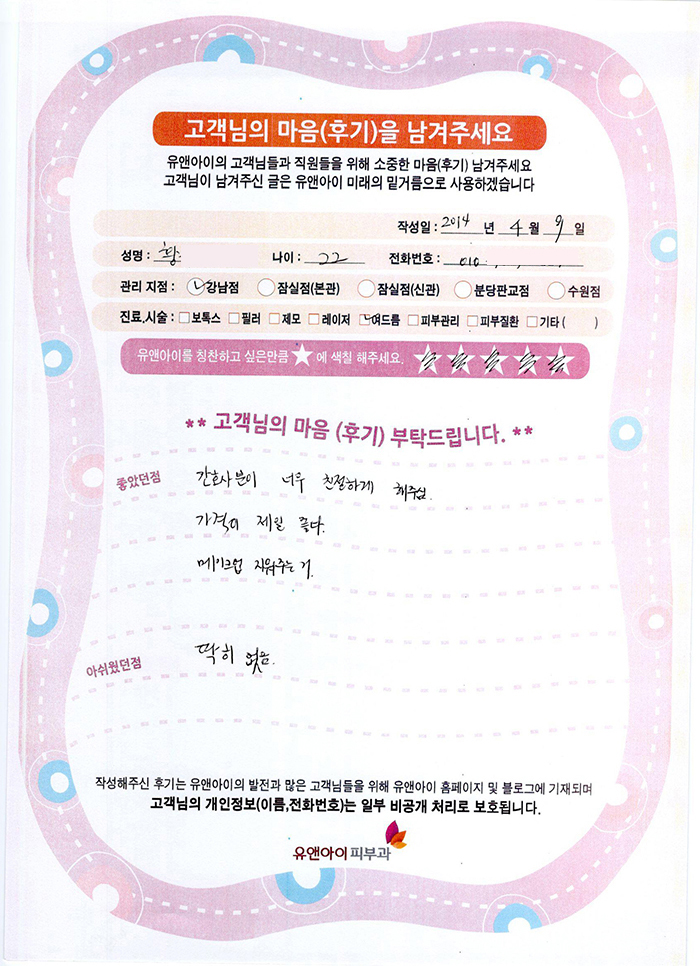 고객님의 마음(후기)을 남겨주세요
유앤아이의 고객님들과 직원들을 위해 소중한 마음(후기) 남겨주세요
고객님이 남겨주신 글은 유앤아이 미래의 밑거름으로 사용하겠습니다
작성일 : 2014 년 4 월 9 일
성명 : 황 나이 : 22 전화번호 : 010
관리 지점 : 강남점 잠실점(본관) 잠실점(신관) 분당판교점 수원점
진료,시술 : 보톡스 필러 제모 레이저 여드름 피부관리 피부질환 기타 ( )
유앤아이를 칭찬하고 싶은만큼 ★ 에 색칠 해주세요.
** 고객님의 마음 (후기) 부탁드립니다. **
좋았던점 간호사분이 너무 친절하게 해주심.
가격이 제일 좋다.
메이크업 지워주는거.
아쉬웠던점 딱히 없음.
작성해주신 후기는 유앤아이의 발전과 많은 고객님들을 위해 유앤아이 홈페이지 및 블로그에 기재되며
고객님의 개인정보(이름,전화번호)는 일부 비공개 처리로 보호됩니다.
유앤아이피부과